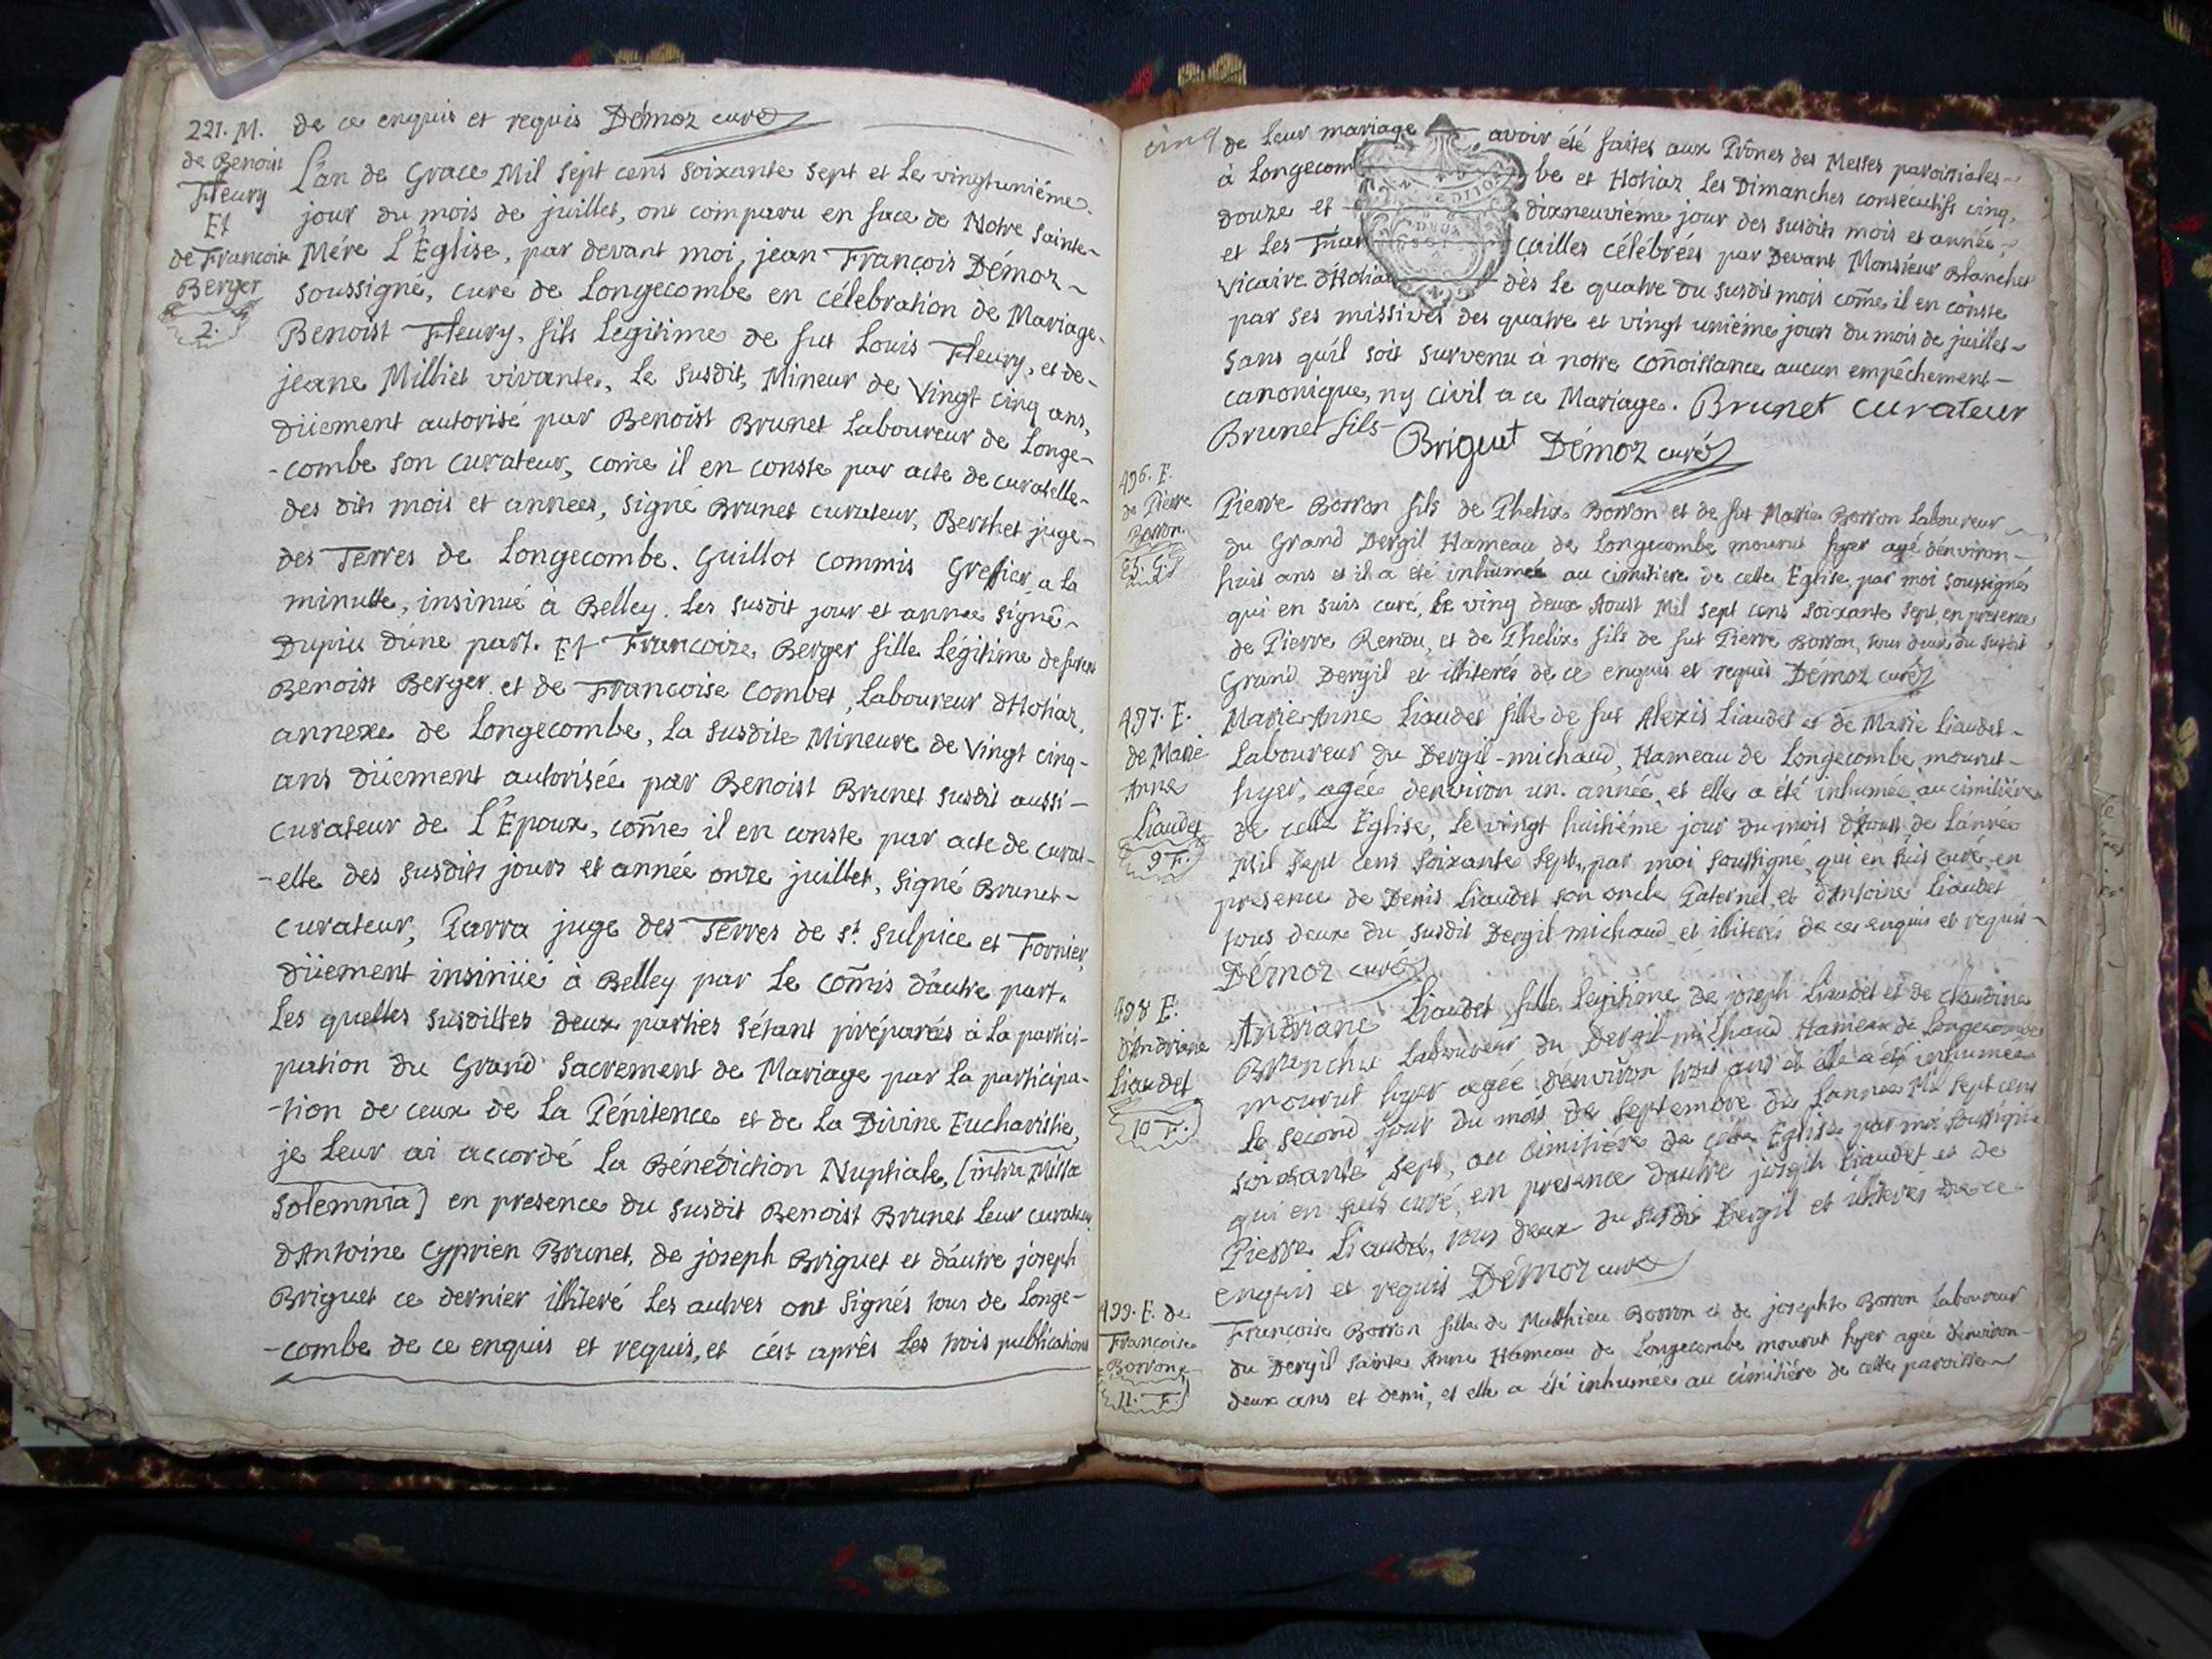 221. M.
de Benoist
Fleury
Et
de Francoise
Berger
2.
de ce enquis et requis Démoz curé
L'an de Grace Mil sept cens soixante sept et Le vingtuniéme
jour du mois de juillet, ont comparu en face de Notre Sainte
Mére L'Eglise, par devant moi, jean François Démoz
soussigné, curé de Longecombe en célebration de Mariage
Benoist Fleury, fils Legitime de fut Louis Fleury, et de
jeane Milliet vivante, Le susdit, Mineur de Vingt cinq ans,
düement autorisé par Benoist Brunet Laboureur de Longe-
-combe son curateur, come il en conste par acte de curatelle
des dits mois et annees, signé Brunet curateur, Berthet juge
des Terres de Longecombe. Guillot Commis Grefier, a La
minutte, insinué à Belley. Les susdit jour et annee signé
Dupiu d'une part. Et Francoize Berger fille Légitime de
Benoist Berger et de Francoise Combet, Laboureur d'Hotiaz,
annexe de Longecombe, La susdite Mineure de Vingt cinq
ans düement autorisée par Benoist Brunet susdit aussi
curateur de L'Epoux, come il en conste par acte de curat-
-elle des susdits jours et année onze juillet, signé Brunet
curateur, Parra juge des Terres de St. Sulpice et Fornier,
düement insinüée à Belley par Le Comis d'autre part.
Les quelles susdittes deux parties s'étant préparées à La partici-
pation du Grand Sacrement de Mariage par La participa-
-tion de ceux de La Pénitence et de La Divine Eucharistie,
je Leur ai accordé La Bénédiction Nuptiale, [intra Missa
Solemnia] en presence du susdit Benoist Brunet Leur curateur,
d'Antoine Cyprien Brunet, de joseph Briguet et d'autre joseph
Briguet ce dernier illiteré Les autres ont signés tous de Longe-
-combe de ce enquis et requis, et c'est après Les trois publications
cinq
de Leur mariage avoir été faites aux Prônes des Messes paroissiales
à Longecombe et Hotiaz Les Dimanches consecutifs cinq,
douze et dixneuviéme jour des susdits mois et année
et Les fiancailles célébrées par Devant Monsieur Blanchet
Vicaire d'Hotiaz dès Le quatre du susdit mois come il en conste
par ses missives des quatre et vingt uniéme jours du mois de juillet
sans qu'il soit survenu à notre connoissance aucun empêchement
canonique, ny Civil a ce Mariage. Brunet curateur
Brunet fils Briguet Démoz curé
496. E.
de Pierre
Borron.
Pierre Borron fils de Phelix Borron et de fut Marie Borron Laboureur
du Grand Dergil Hameau de Longecombe mourut hyer agé d'environ
huit ans et il a été inhumée au cimitiere de cette Eglise, par moi soussigné
qui en suis curé, Le ving deux Aoust Mil sept cens soixante sept, en présence
de Pierre Rendu, et de Phelix fils de fut Pierre Borron, tous deux du susdit
Grand Dergil et illiterés de ce enquis et requis Démoz curé
497. E.
de Marie
Anne
Liaudet
9 F.
Marie Anne Liaudet fille de fut Alexis Liaudet et de Marie Liaudet
Laboureur du Dergil-michaud, Hameau de Longecombe mourut
hyer, agée d'environ un. année, et elle a été inhumée au cimitière
de cette Eglise, Le vingt huitiéme jour du mois d'Aoust de L'année
Mil sept cens soixante sept, par moi soussigné, qui en suis curé, en
présence de Denis Liaudet son oncle Paternel, et d'Antoine Liaudet
tous deux du susdit Dergil-michaud, et illiterés de ce enquis et requis
Démoz curé
498 E.
d'Andriane
Liaudet
10 F.
Andriane Liaudet fille Legitime de joseph Liaudet et de claudine
Branche Laboureur du Dergil-michaud Hameau de Longecombe
mourut hyer agée d'environ trois ans et elle a été inhumée
Le second jour du mois de septembre de L'annee Mil sept cens
soixante sept, au cimitiére de cette Eglise par moi soussigné
qui en suis curé, en presence d'autre joseph Liaudet et de
Pierre Liaudet, tous deux du susdit Dergil et illiterés de ce
enquis et requis Démoz curé
499. E. de
Francoise
Borron
11. F.
Francoise Borron fille de Matthieu Borron et de josephte Borron Laboureur
du Dergil Sainte Anne Hameau de Longecombe mourut hyer agée d'environ
deux ans et demi, et elle a été inhumée au cimitiére de cette paroisse